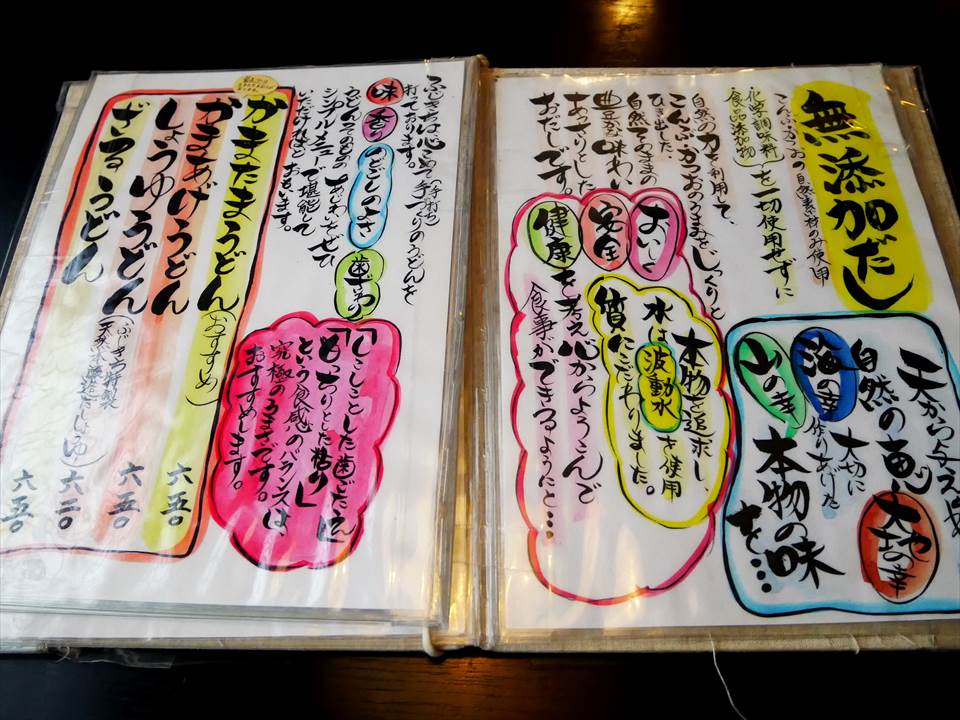 無添加だし
こんぶ・かつおの自然素材のみ使用
化学調味料
食品添加物
を一切使用せずに
自然の力を利用して、
こんぶ・かつおのうまみをじっくりと
ひき出した
自然そのままの
豊かな味わい
あっさりとした
おだしです。
天から与えられた
自然の恵み
大地の幸
海の幸
山の幸
大切に
作りあげた
本物の味
を…
本物を追求し、
水は波動水を使用
質にこだわりました。
おいしく
安全
健康を考え心からようこんで
食事ができるようにと…
ふじきちは心こめて(手打ち)手づくりのうどんを
打っております。
味 香り のどごしのよさ 歯ざわり
うどんそのもののあじわいをぜひ
シンプルメニューで堪能して
いただければと
おもいます。
「しこしことした歯ごたえ」
「もっちりとした粘り」
という食感のバランスは、
究極のうまさです。
おすすめします。
かまたまうどん(おすすめ) 六五〇
かまあげうどん 六五〇
しょうゆうどん(ふじきち特製 天然木樽造だしじょうゆ) 六二〇
ざるうどん 六五〇